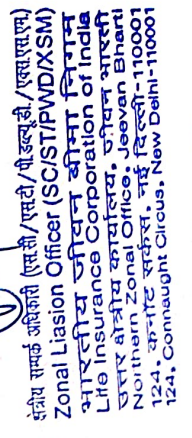 क्षेत्रीय सम्पर्क अधिकारी (एस.सी/एस.टी/पी.डब्ल्यू.डी./एक्स.एस.एम.)
Zonal Liasion Officer (SC/ST/PWD/XSM)
भारतीय जीवन बीमा निगम
Life Insurance Corporation of India
उत्तर क्षेत्रीय कार्यालय, जीवन भारती
Northern Zonal Office, Jeevan Bharti
124, कनॉट सर्कस, नई दिल्ली-110001
124, Connaught Circus, New Delhi-110001